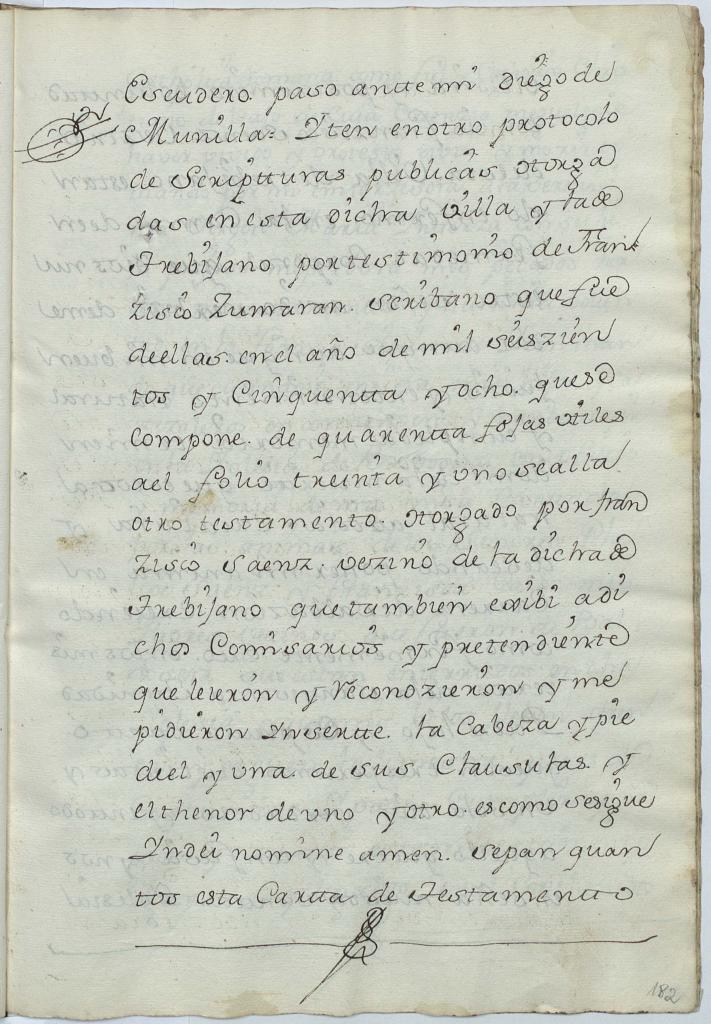 Escudero. paso antte mi Diego de
Munilla = Yten en otro protocolo
de Scriptturas publicas otorga
das en esta dicha Villa y la de
Trebijano por testimonio de Fran
zisco Zumaran. scribano que fue
de ellas. en el año de mil seiszien
tos y Cinquentta y ocho. que se
compone. de quarentta fojas utiles
a el folio treinta y uno se alla
otro testamento. otorgado por fran
zisco Saenz. vezino de la dicha de
Trebijano que tambien exibi a di
chos Comisarios y pretendiente
que leieron y reconozieron y me
pidieron Insertte. la Cabeza y pie
de el y una. de sus Clausulas. y
el thenor de uno y otro. es como se sigue
Yn dei nomine amen. sepan quan
tos esta Cartta de Testamentto
182